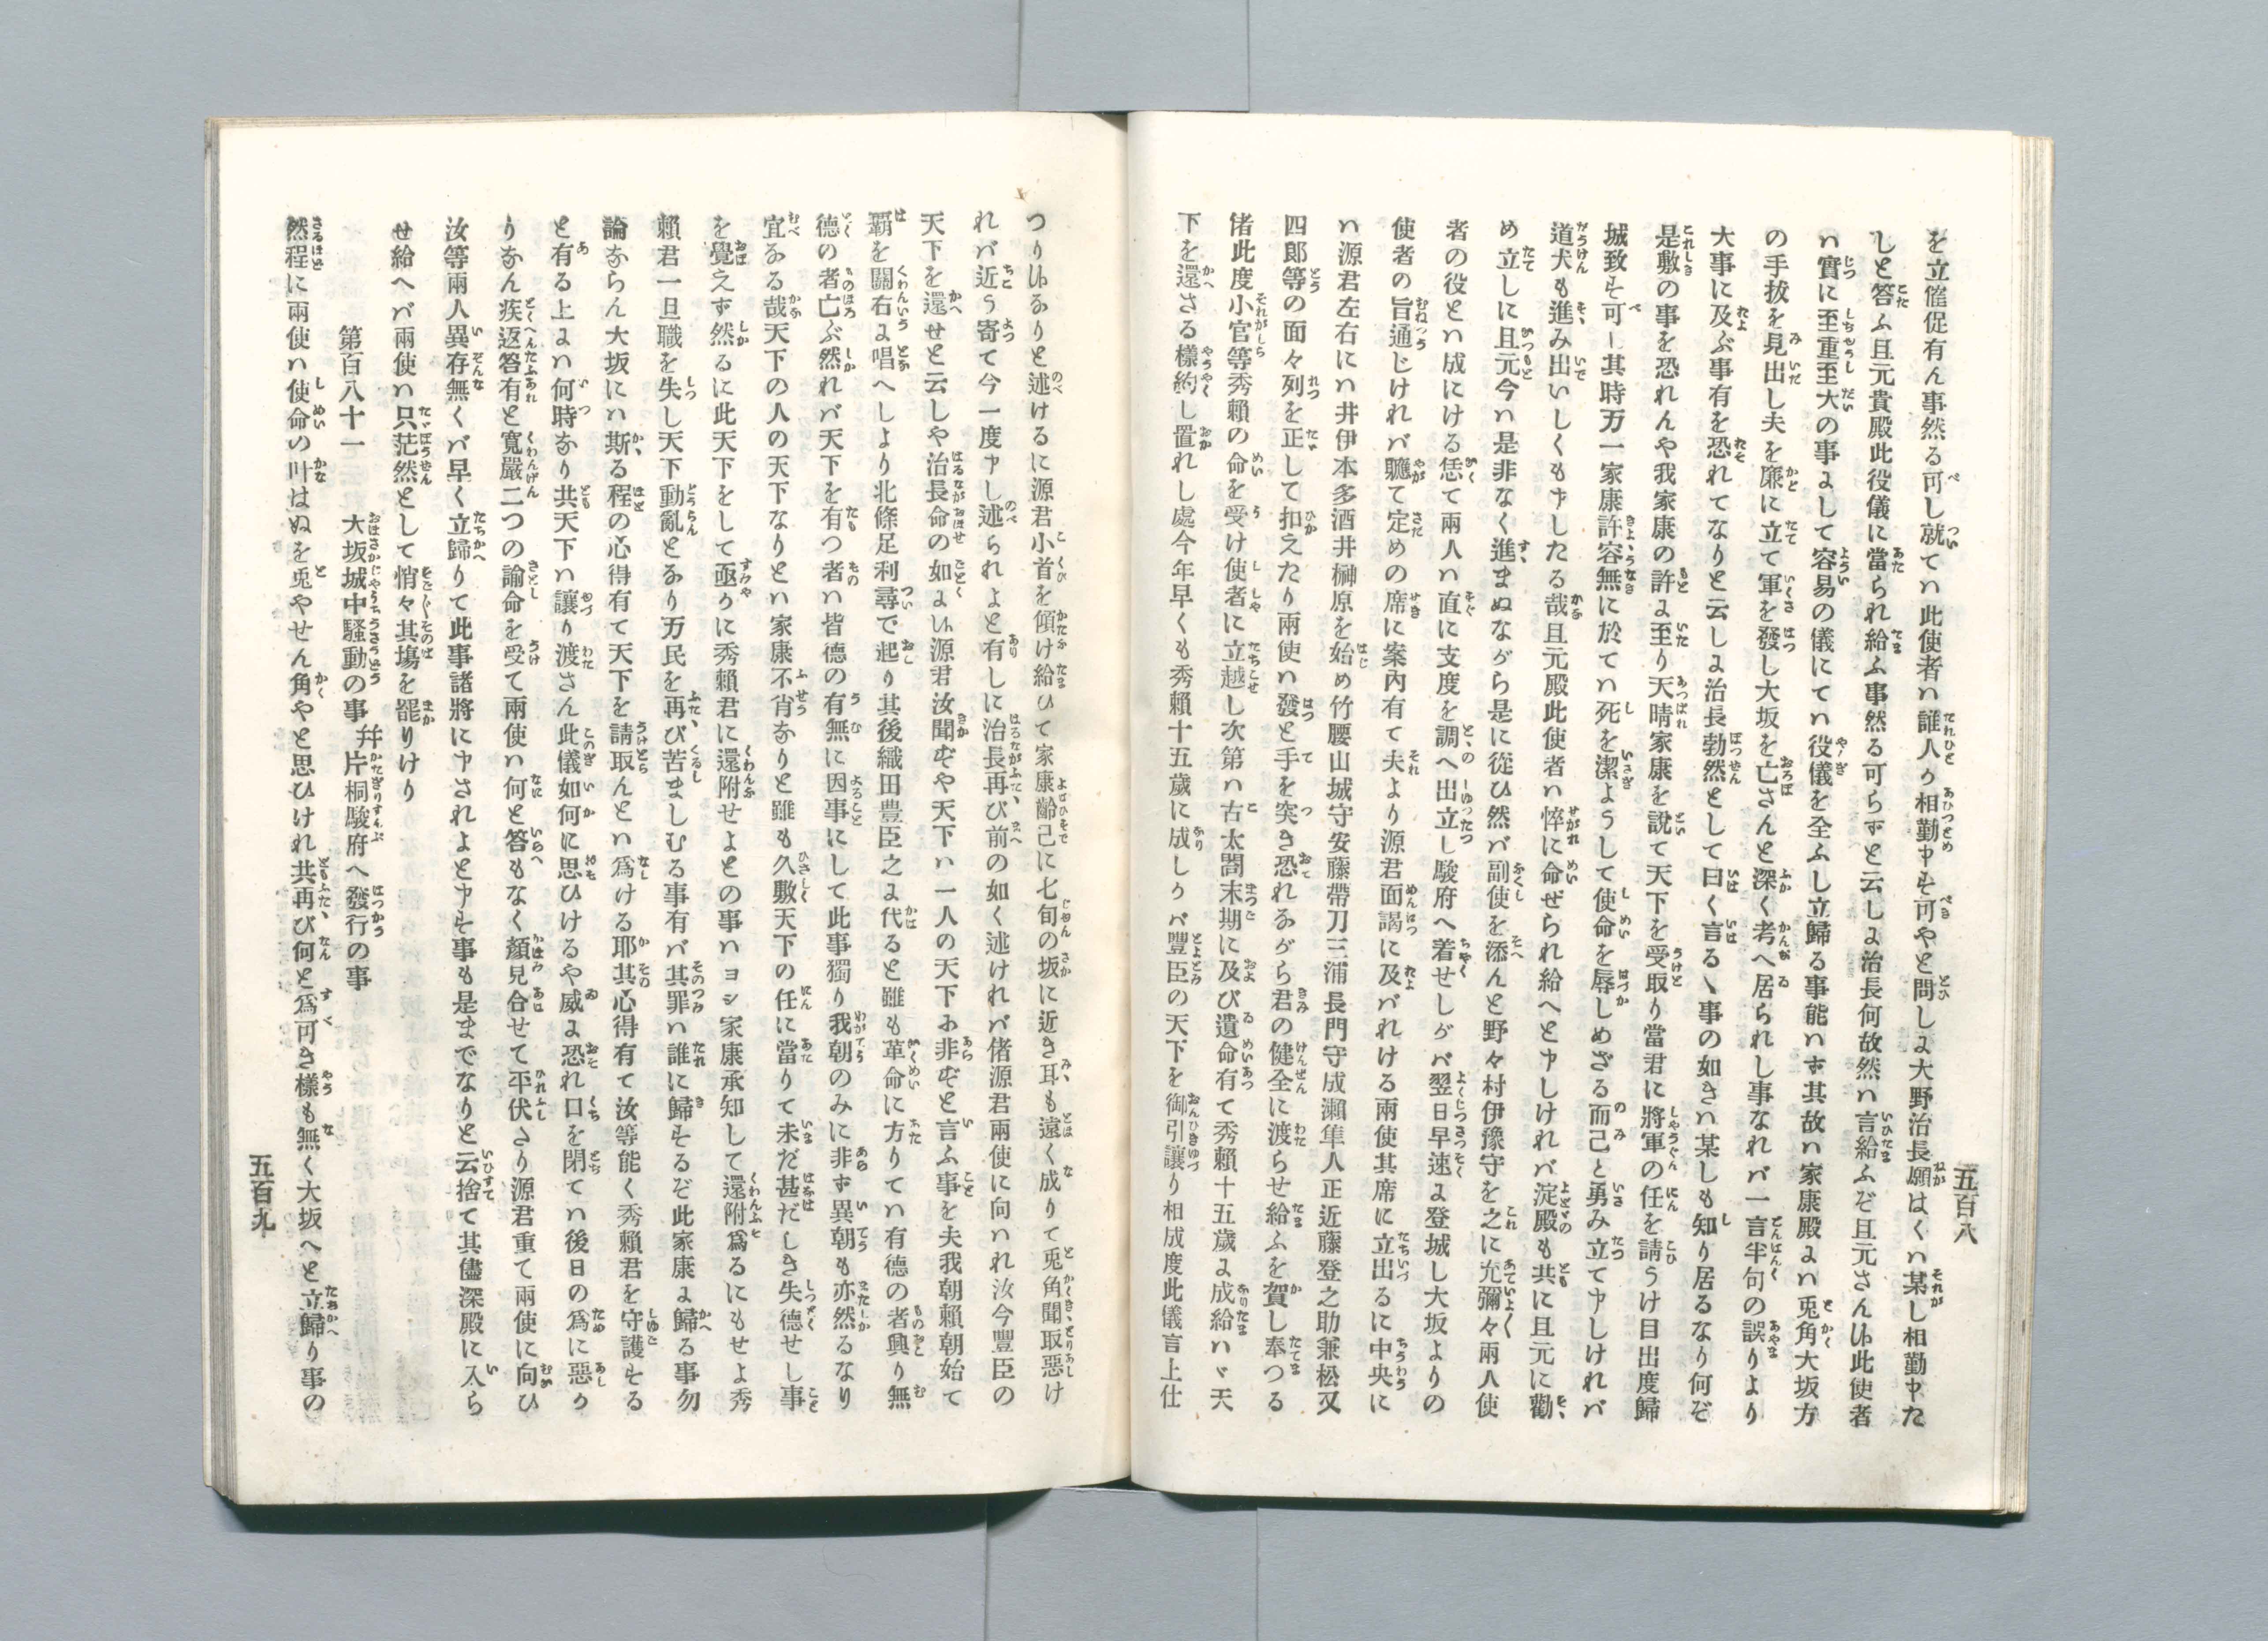 五百八
を立催促有ん事然る可し就てハ此使者ハ誰人か相勤申す可やと問しに大野治長願はくハ某し相勤申た
しと答ふ且元貴殿此役儀に當られ給ふ事然る可らずと云しに治長何故然ハ言給ふぞ且元さん候此使者
ハ實に至重至大の事にして容易の儀にてハ役儀を全ふし立歸る事能ハず其故ハ家康殿にハ兎角大坂方
の手抜を見出し夫を廉に立て軍を發し大坂を亡さんと深く考へ居られし事なれバ一言半句の誤りより
大事に及ぶ事有を恐れてなりと云しに治長勃然として曰く言るゝ事の如きハ某しも知り居るなり何ぞ
是敷の事を恐れんや我家康の許に至り天晴家康を說て天下を受取り當君に將軍の任を請うけ目出度歸
城致す可し其時万一家康許容無に於てハ死を潔ようして使命を辱しめざる而己と勇み立て申しけれバ
道犬も進み出いしくも申したる哉且元殿此使者ハ悴に命ぜられ給へと申しけれバ淀殿も共に且元に勸
め立しに且元今ハ是非なく進まぬながら是に從ひ然バ副使を添んと野々村伊豫守を之に充彌々兩人使
者の役とハ成にける恁て兩人ハ直に支度を調へ出立し駿府へ着せしがバ翌日早速に登城し大坂よりの
使者の旨通じけれバ軈て定めの席に案內有て夫より源君面謁に及バれける兩使其席に立出るに中央に
ハ源君左右にハ井伊本多酒井榊原を始め竹腰山城守安藤帶刀三浦長門守成瀨隼人正近藤登之助兼松又
四郎等の面々列を正して扣えたり兩使ハ發と手を突き恐れながら君の健全に渡らせ給ふを賀し奉つる
偖此度小官等秀賴の命を受け使者に立越し次第ハ古太閤末期に及び遺命有て秀賴十五歲に成給ハヾ天
下を還さる樣約し置れし處今年早くも秀賴十五歲に成しかバ豐臣の天下を御引讓り相成度此儀言上仕
つり候なりと述けるに源君小首を傾け給ひて家康齡己に七旬の坂に近き耳も遠く成りて兎角聞取惡け
れバ近う寄て今一度申し述られよと有しに治長再び前の如く述けれバ偖源君兩使に向ハれ汝今豐臣の
天下を還せと云しや治長命の如くに候源君汝聞ずや天下ハ一人の天下に非ずと言ふ事を夫我朝賴朝始て
覇を關右に唱へしより北條足利尋で起り其後織田豊臣之に代ると雖も革命に方りてハ有德の者興り無
德の者亡ぶ然れバ天下を有つ者ハ皆德の有無に因事にして此事獨り我朝のみに非ず異朝も亦然るなり
宜なる哉天下の人の天下なりとハ家康不肖なりと雖も久敷天下の任に當りて未だ甚だしき失德せし事
を覺えず然るに此天下をして亟かに秀賴君に還附せよとの事ハヨシ家康承知して還附爲るにもせよ秀
賴君一旦職を失し天下動亂となり万民を再び苦ましむる事有バ其罪ハ誰に歸するぞ此家康に歸る事勿
論ならん大坂にハ斯る程の心得有て天下を請取んとハ爲ける耶其心得有て汝等能く秀賴君を守護する
と有る上にハ何時なり共天下ハ讓り渡さん此儀如何に思ひけるや威に恐れ口を閉てハ後日の爲に惡か
りなん疾返答有と寬嚴二つの諭命を受て兩使ハ何と答もなく顏見合せて平伏さり源君重て兩使に向ひ
汝等兩人異存無くバ早く立歸りて此事諸將に申されよと申す事も是までなりと云捨て其儘深殿に入ら
せ給へバ兩使ハ只茫然として悄々其塲を罷りけり
第百八十一　大坂城中騷動の事 幷 片桐駿府へ發行の事
然程に兩使ハ使命の叶はぬを兎やせん角やと思ひけれ共再び何と爲可き樣も無く大坂へと立歸り事の
五百九